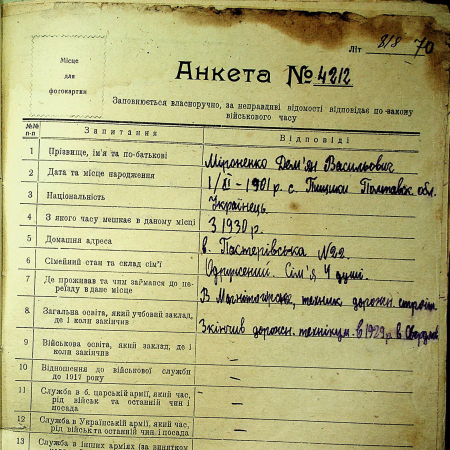 Літ 8/8 70
Місце
для
фотокартки
Анкета № 4212
Заповнюється власноручно, за неправдиві відомості відповідає по закону
військового часу
№№ п-п Запитання Відповіді
1 Прізвище, ім'я та по-батькові Міроненко Дем'ян Васильович
2 Дата та місце народження 1/XI - 1901 р. с. Полтавск. обл.
3 Національність Українець.
4 З якого часу мешкає в даному місці З 1930 р.
5 Домашня адреса в. Пастерівська №22
6 Сімейний стан та склад сім'ї Одружений. Сім'я 4 душі.
7 Де проживав та чим займався до пе-
реїзду в дане місце В Магнітогорську, технік дорожн.
8 Загальна освіта, який учбовий заклад,
де і коли закінчив Закінчив дорожн. технікум в 1929 р. в
9 Військова освіта, який заклад, де і
коли закінчив —
10 Відношення до військової служби
до 1917 року —
11 Служба в б. царській армії, який час,
рід військ та останній чин і
посада —
12 Служба в Українській армії, який час,
рід військ та останній чин і посада —
13 Служба в інших арміях (за винятком